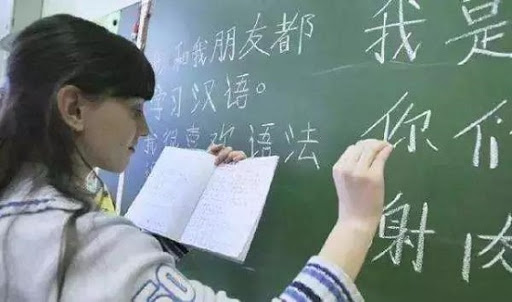 和我朋友都
学习汉语。
我很喜欢语法
我是
你们
射肉
50